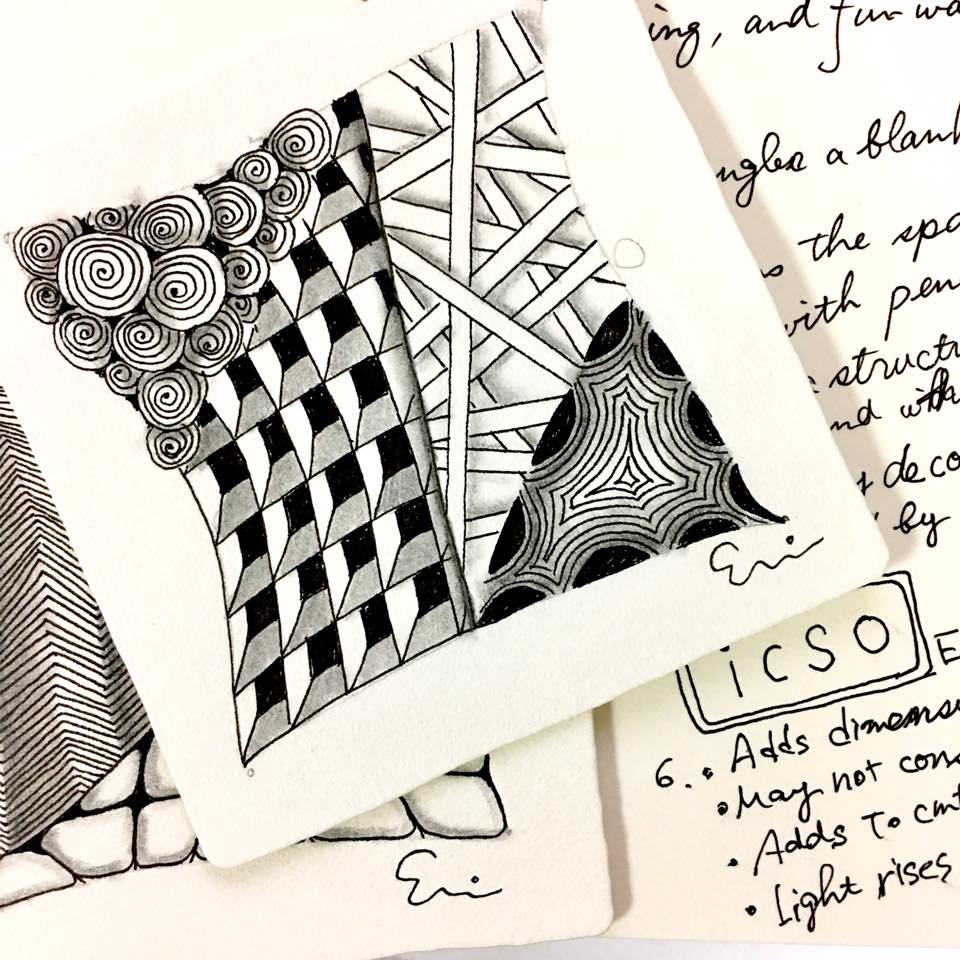 ing, and fun wa
ngles a blank
s the spa
with pen
structu
nd with
deco
by
Eni
icso
E
6. • Adds dimens
• May not cons
• Adds To cont
• Light rises
Eni